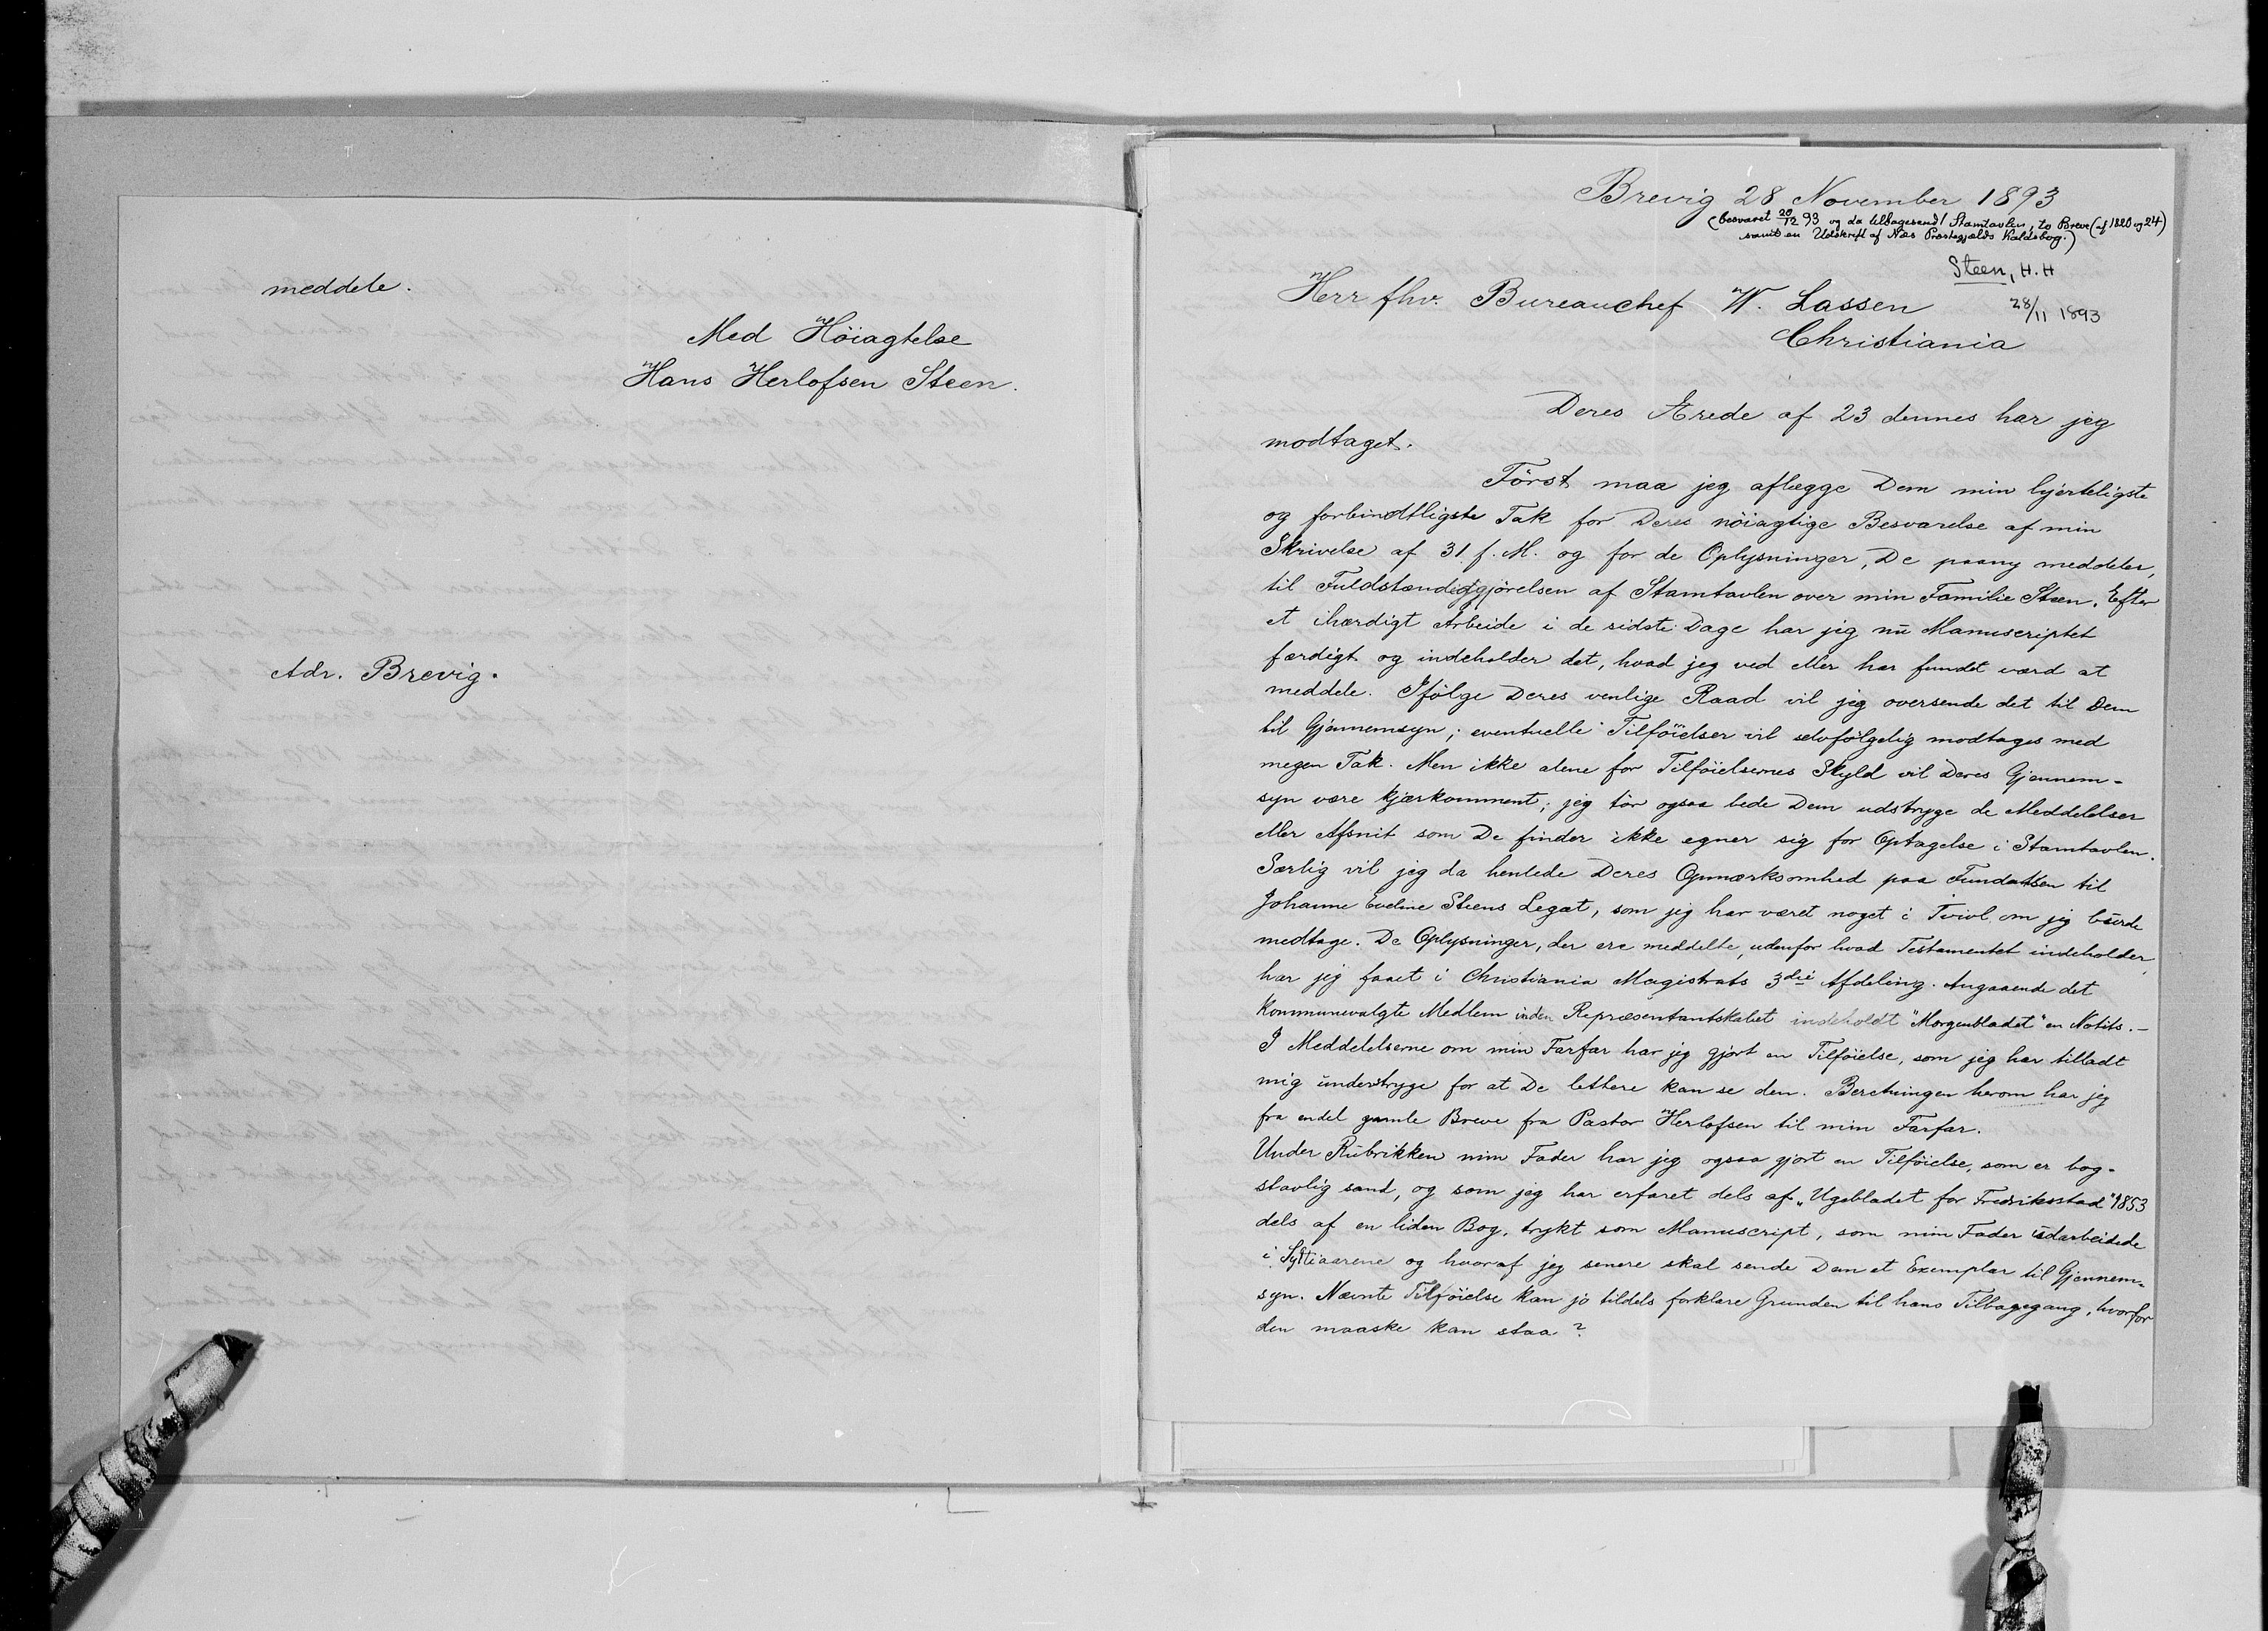 meddele.
Med Höiagtelse
Hans Herlofsen Steen.
Adr. Brevig.
Brevig 28 November 1893
(besvaret 20/12 93 og da tilbagesendt Stamtavlen, to Breve (af 1820 og 24)
samt en Udskrift af Næs Præstegjælds Kaldsbog.)
Steen, H. H
28/11 1893
Herr fhv. Bureauchef W. Lassen
Christiania
Deres Ærede af 23 dennes har jeg
modtaget.
Först maa jeg aflægge Dem min hjerteligste
og forbindtligste Tak for Deres nöiagtige Besvarelse af min
Skrivelse af 31 f. M. og for de Oplysninger, De paany meddeler,
til Fuldstændiggjörelsen af Stamtavlen over min Familie Steen. Efter
et ihærdigt Arbeide i de sidste Dage har jeg nu Manuscriptet
færdigt og indeholder det, hvad jeg ved eller har fundet værd at
meddele. Ifölge Deres venlige Raad vil jeg oversende det til Dem
til Gjennemsyn; eventuelle Tilföielser vil selvfölgelig modtages med
megen Tak. Men ikke alene for Tilföielsernes Skyld vil Deres Gjennem-
syn være kjærkomment; jeg tör ogsaa bede Dem udstryge de Meddelelser
eller Afsnit som De finder ikke egner sig for Optagelse i Stamtavlen.
Særlig vil jeg da henlede Deres Opmærksomhed paa Fundatsen til
Johanne Eveline Steens Legat, som jeg har været noget i Tvivl om jeg burde
medtage. De Oplysninger, der ere meddelte, udenfor hvad Testamentet indeholder,
har jeg faaet i Christiania Magistrats 3die Afdeling. Angaaende det
kommunevalgte Medlem inden Repræsentantskabet indeholdt "Morgenbladet" en Notits.-
I Meddelelserne om min Farfar har jeg gjort en Tilföielse, som jeg har tilladt
mig understryge for at De lettere kan se den. Beretningen herom har jeg
fra endel gamle Breve fra Pastor Herlofsen til min Farfar.
Under Rubrikken min Fader har jeg ogsaa gjort en Tilföielse, som er bog-
stavlig sand, og som jeg har erfaret dels af "Ugebladet for Fredriksstad" 1853
dels af en liden Bog, trykt som Manuscript, som min Fader udarbeidede
i Syttiaarene og hvoraf jeg senere skal sende Dem et Exemplar til Gjennem-
syn. Nævnte Tilföielse kan jo tildels forklare Grunden til hans Tilbagegang, hvorfor
den maaske kan staa?